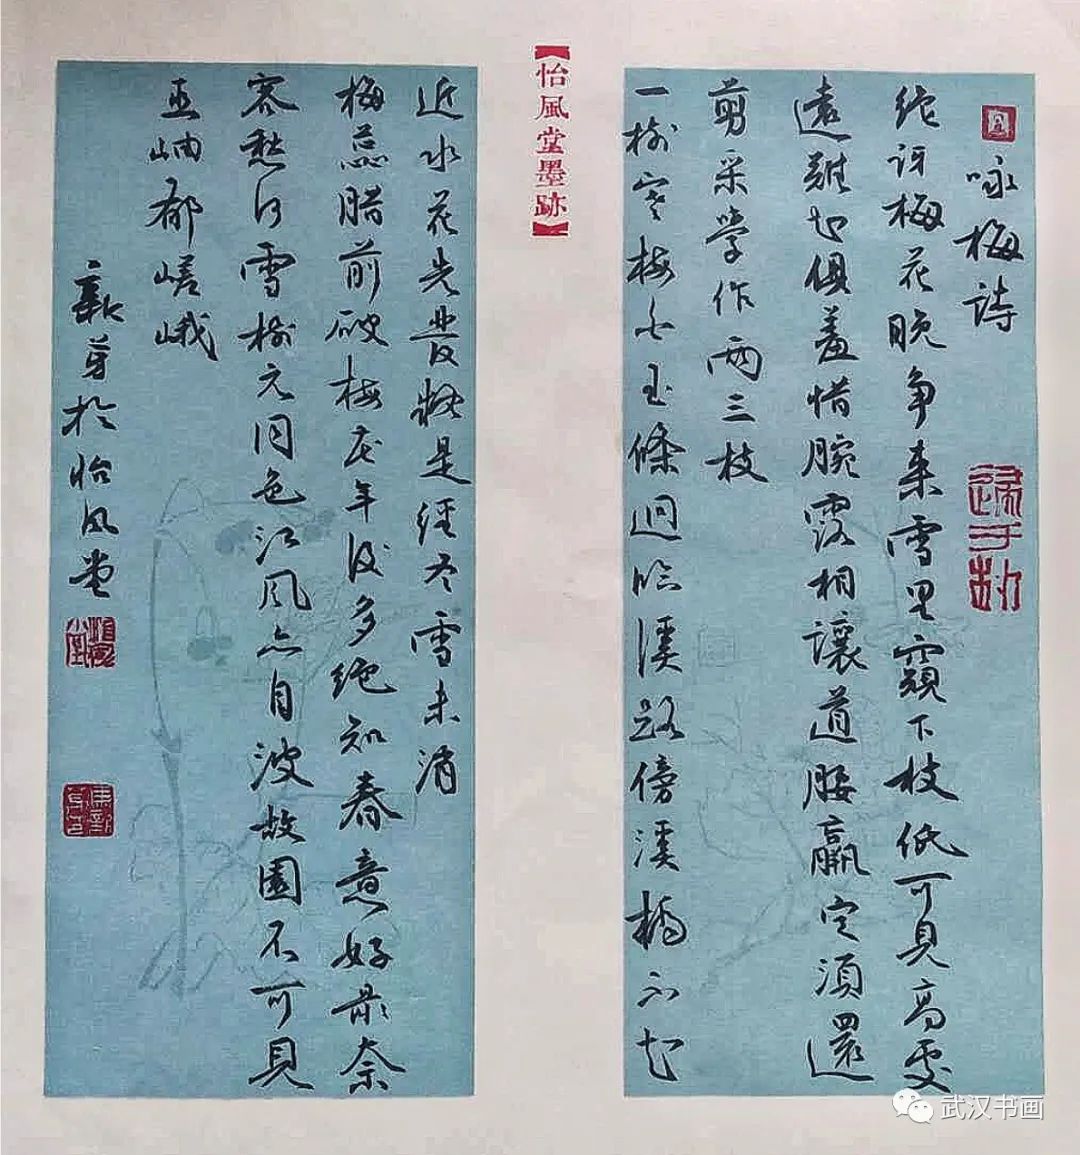 咏梅詩
绝讶梅花晚争来雪里窺下枝低可見高處
遠難知俱羞惜腕露相讓道腰羸定須還
剪采学作两三枝
一树寒梅白玉條迥临溪路傍溪橋不知
【怡風堂墨跡】
近水花先發疑是经冬雪未消
梅蕊腊前破梅花年後多绝知春意好最奈
客愁何雪树元同色江风亦自波故園不可見
巫岫郁嵯峨
於怡风堂
武汉书画